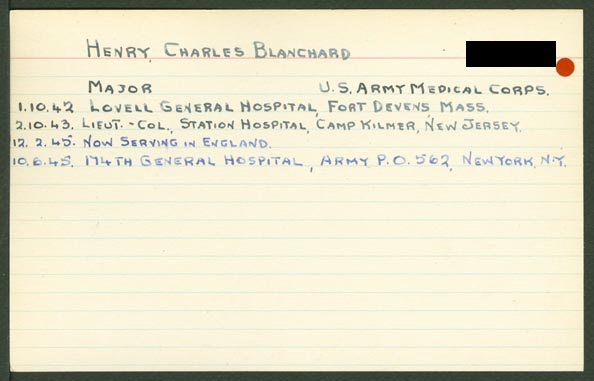 HENRY CHARLES BLANCHARD
MAJOR U.S. ARMY MEDICAL CORPS.
1.10.42 LOVELL GENERAL HOSPITAL, FORT DEVENS MASS.
2.10.43. LIEUT.-COL., STATION HOSPITAL, CAMP KILMER, NEW JERSEY.
12.2.45. NOW SERVING IN ENGLAND.
10.6.45. 174TH GENERAL HOSPITAL, ARMY P.O. 562, NEW YORK, N.Y.